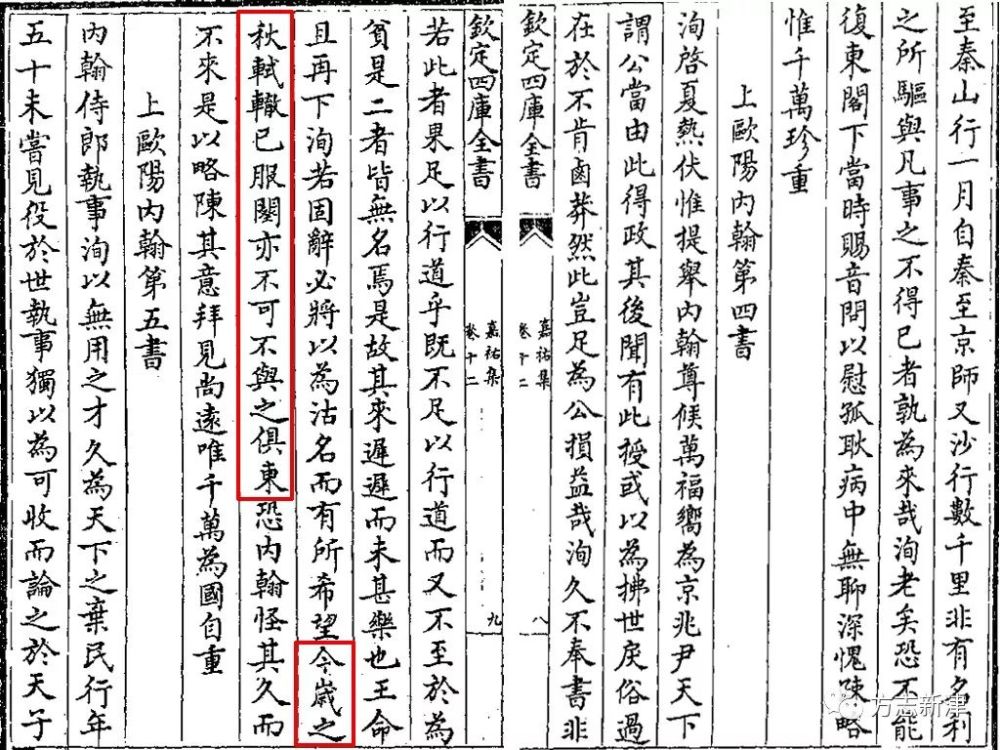 至秦山行一月自秦至京師又沙行數千里非有名利
之所驅與凡事之不得已者孰為來哉洵老矣恐不能
復東閣下當時賜音問以慰孤耿病中無聊深愧疎略
惟千萬珍重
上歐陽内翰第四書
洵啓夏熱伏惟提舉内翰尊候萬福嚮為京兆尹天下
謂公當由此得政其後聞有此授或以為拂世戾俗過
在於不肯鹵莽然此豈足為公損益哉洵久不奉書非
欽定四庫全書
嘉祐集
卷十二
八
欽定四庫全書
嘉祐集
卷十二
九
若此者果足以行道乎既不足以行道而又不至於為
貧是二者皆無名焉是故其來遲遲而未甚樂也王命
且再下洵若固辭必將以為沽名而有所希望今歲之
秋軾轍已服闋亦不可不與之俱東恐内翰怪其久而
不來是以略陳其意拜見尚遠唯千萬為國自重
上歐陽内翰第五書
内翰侍郎執事洵以無用之才久為天下之棄民行年
五十未嘗見役於世執事獨以為可收而論之於天子
方志新津